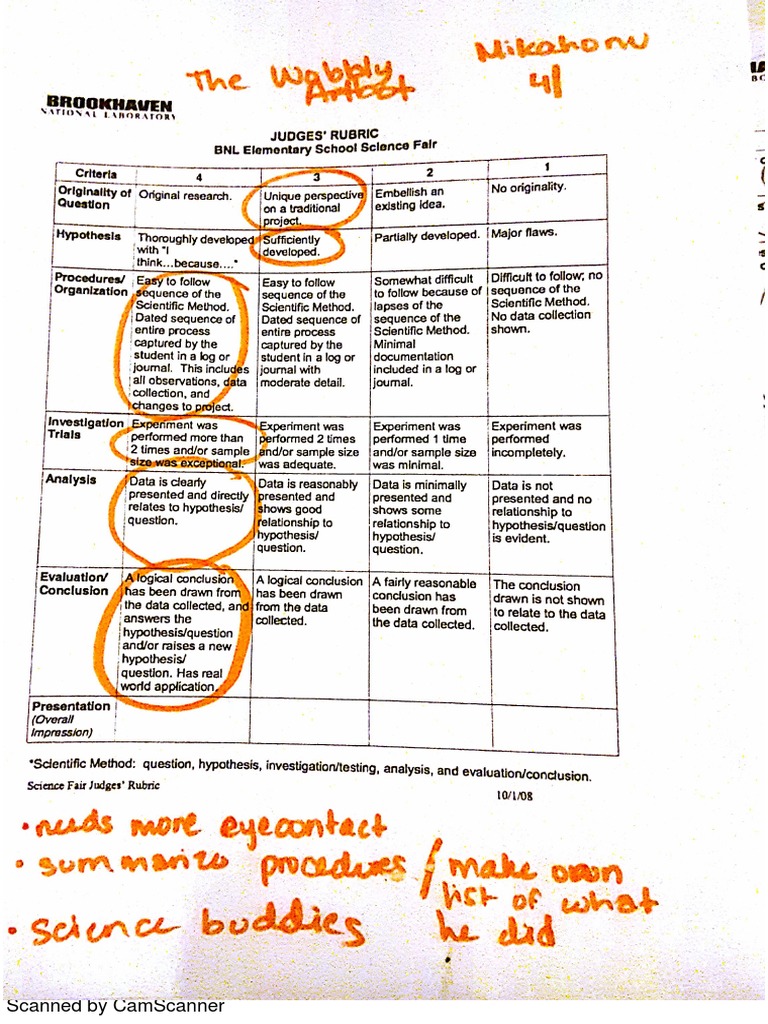 The Wobbly
Artbot
Mikahorw
4/
BROOKHAVEN
NATIONAL LABORATORY
JUDGES' RUBRIC
BNL Elementary School Science Fair
Criteria 4 3 2 1
Originality of Question
Original research.
Unique perspective
on a traditional
project.
Embellish an
existing idea.
No originality.
Hypothesis
Thoroughly developed
with "I
think...because...."
Sufficiently
developed.
Partially developed.
Major flaws.
Procedures/
Organization
Easy to follow
sequence of the
Scientific Method.
Dated sequence of
entire process
captured by the
student in a log or
journal. This includes
all observations, data
collection, and
changes to project.
Easy to follow
sequence of the
Scientific Method.
Dated sequence of
entire process
captured by the
student in a log or
journal with
moderate detail.
Somewhat difficult
to follow because of
lapses of the
sequence of the
Scientific Method.
Minimal
documentation
included in a log or
journal.
Difficult to follow; no
sequence of the
Scientific Method.
No data collection
shown.
Investigation
Trials
Experiment was
performed more than
2 times and/or sample
size was exceptional.
Experiment was
performed 2 times
and/or sample size
was adequate.
Experiment was
performed 1 time
and/or sample size
was minimal.
Experiment was
performed
incompletely.
Analysis
Data is clearly
presented and directly
relates to hypothesis/
question.
Data is reasonably
presented and
shows good
relationship to
hypothesis/
question.
Data is minimally
presented and
shows some
relationship to
hypothesis/
question.
Data is not
presented and no
relationship to
hypothesis/question
is evident.
Evaluation/
Conclusion
A logical conclusion
has been drawn from
the data collected, and
answers the
hypothesis/question
and/or raises a new
hypothesis/
question. Has real
world application.
A logical conclusion
has been drawn
from the data
collected.
A fairly reasonable
conclusion has
been drawn from
the data collected.
The conclusion
drawn is not shown
to relate to the data
collected.
Presentation
(Overall
Impression)
*Scientific Method: question, hypothesis, investigation/testing, analysis, and evaluation/conclusion.
Science Fair Judges' Rubric
10/1/08
• needs more eyecontact
• summarize procedures / make own
list of what
he did
• science buddies
Scanned by CamScanner